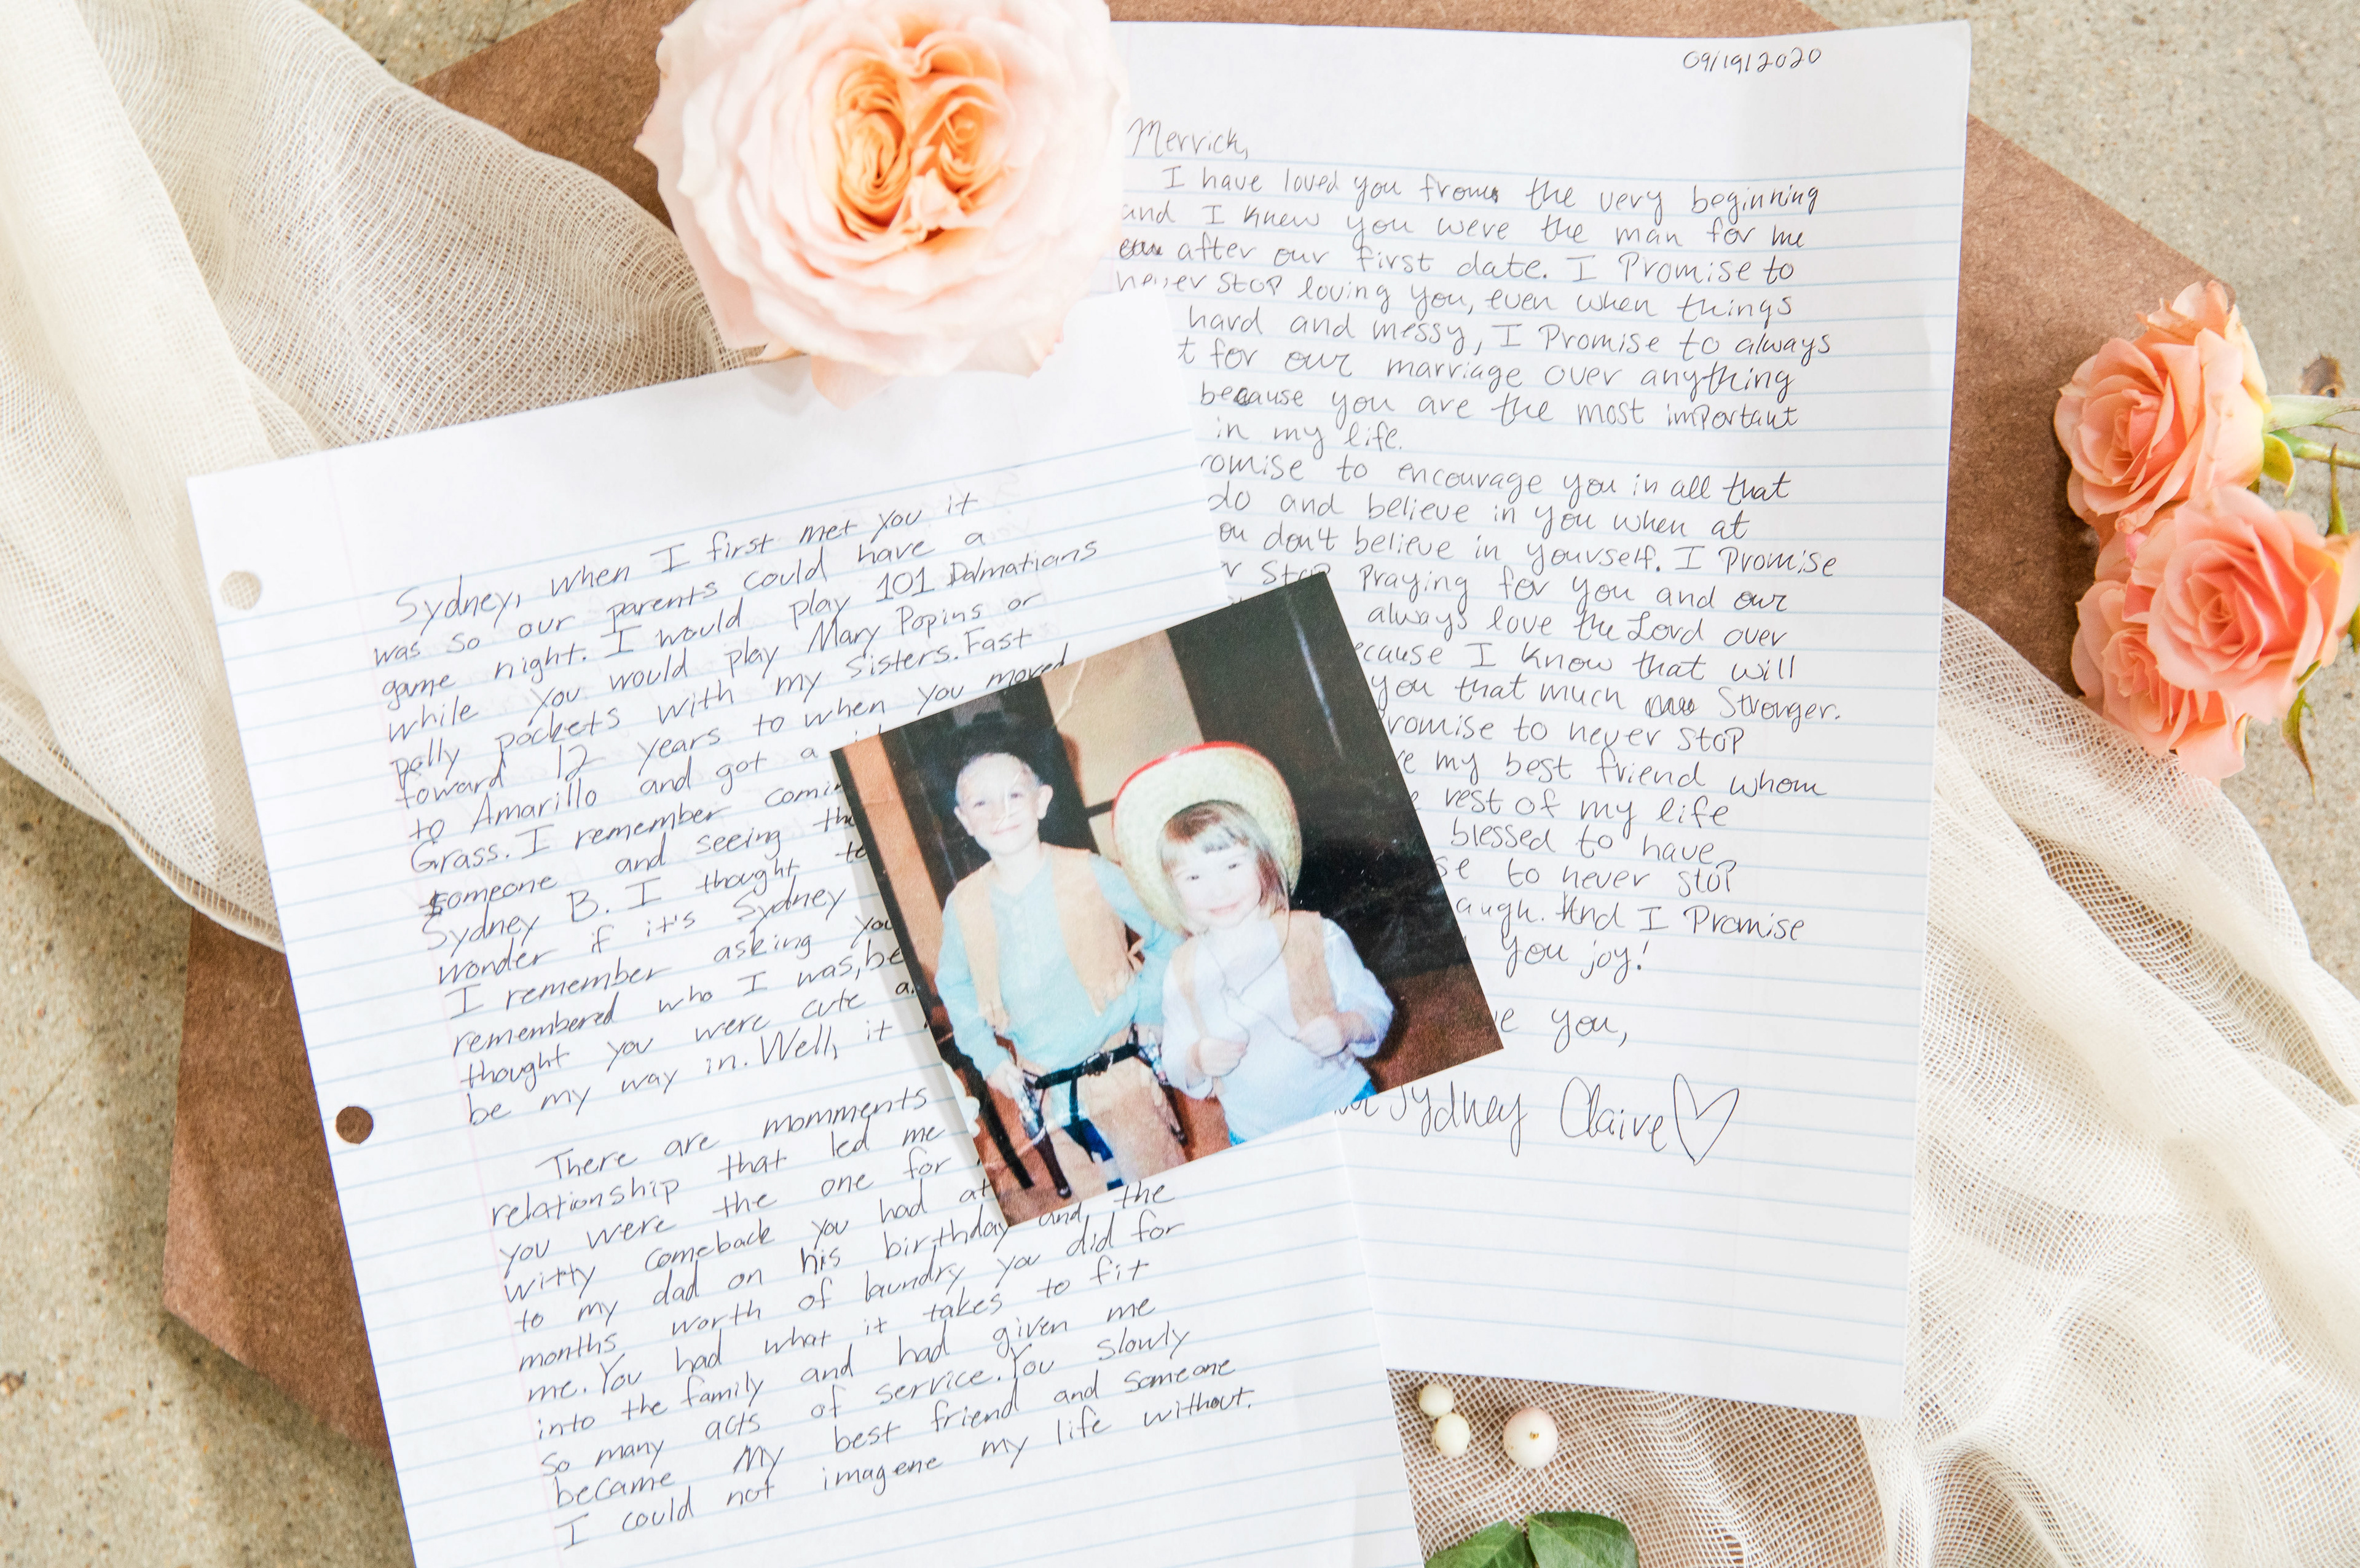 Sydney, when I first met you it
was so our parents could have a
game night. I would play 101 Dalmatians
while you would play Mary Popins or
polly pockets with my sisters. Fast
toward 12 years to when you moved
to Amarillo and got a
Grass. I remember
someone and seeing
Sydney B. I thought
wonder if it's Sydney
I remember asking
remembered who I was,
thought you were cute
be my way in. Well, it
There are momments
relationship that led me
you were the one for
witty comeback you had
to my dad on his birthday and the
months worth of laundry you did for
me. You had what it takes to fit
into the family and had given me
so many acts of service. You slowly
became my best friend and someone
I could not imagene my life without.
09/19/2020
Merrick,
I have loved you from the very beginning
and I knew you were the man for me
after our first date. I Promise to
never stop loving you, even when things
hard and messy, I Promise to always
for our marriage over anything
because you are the most important
in my life.
to encourage you in all that
do and believe in you when at
don't believe in yourself. I Promise
Stop Praying for you and our
always love the Lord over
I know that will
you that much Stronger.
to never stop
my best friend whom
rest of my life
blessed to have
to never stop
And I Promise
you joy!
you,
Sydney Claire